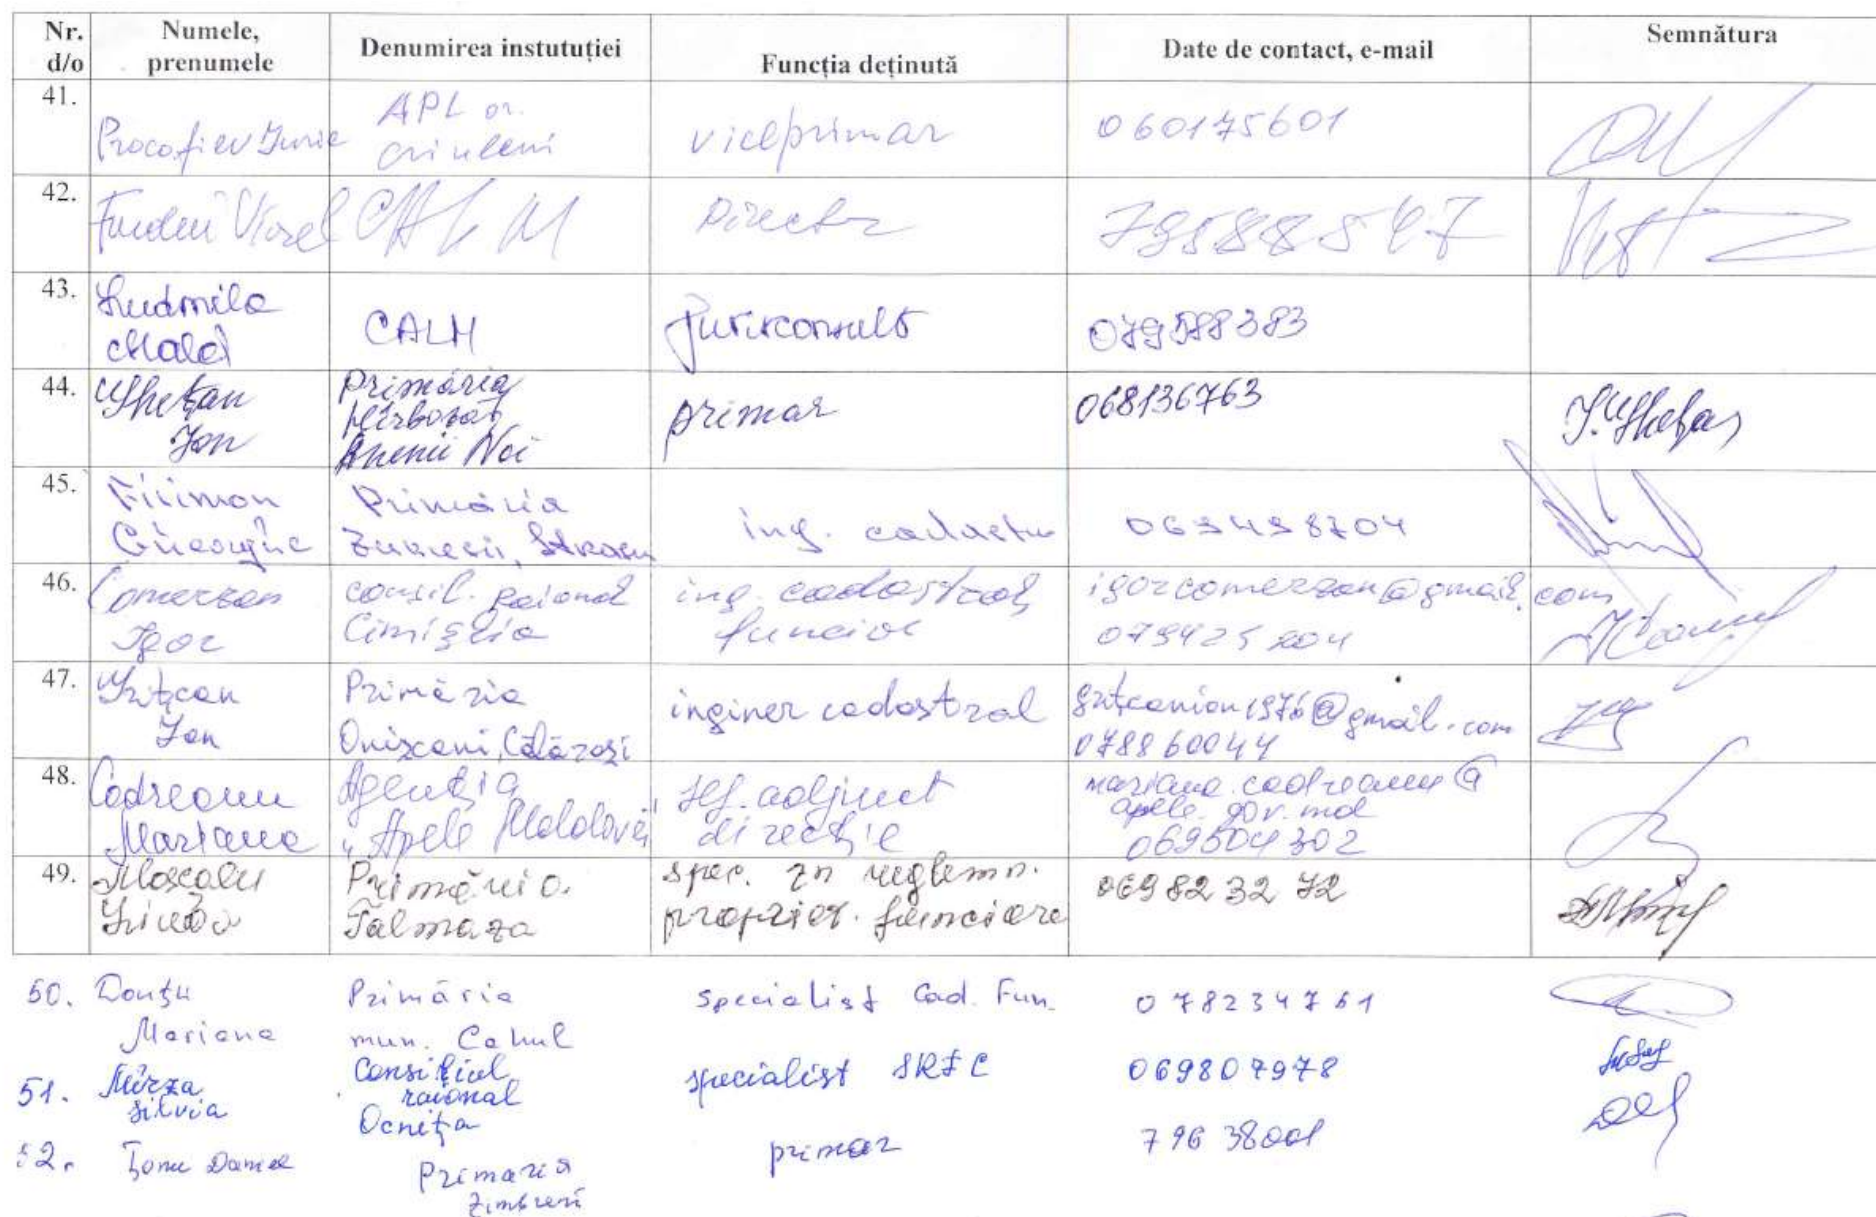 Nr. d/o Numele, prenumele Denumirea instutuției Funcția deținută Date de contact, e-mail Semnătura
41. Procofiev Iurie APL or. Criuleni viceprimar 060175601
42. Furdui Viorel CALM Director 79588547
43. Ludmila CALM Jurisconsult 079588383
44. Ghețan Ion Primăria Anenii Noi primar 068136763
45. Filimon Gheorghe Primăria ing. cadastru 069498704
46. Comerzan Igor consil. raional Cimișlia ing. cadastral funciar igorcomerzan@gmail.com 079425204
47. Grițcan Ion Primăria Onișcani, Călărași inginer cadastral gritcanion1976@gmail.com 078860044
48. Codreanu Mariana Agenția "Apele Moldovei" șef. adjunct direcție mariana.codreanu@apele.gov.md 069504302
49. Moscalu Primăria Talmaza spec. în reglemn. propriet. funciare 069823272
50. Donțu Mariana Primăria mun. Cahul specialist Cad. Fun. 078234761
51. Mîrza Silvia Consiliul raional Ocnița specialist SRFC 069807978
52. Țonu Daniel Primaria Zimbreni primar 796 38001